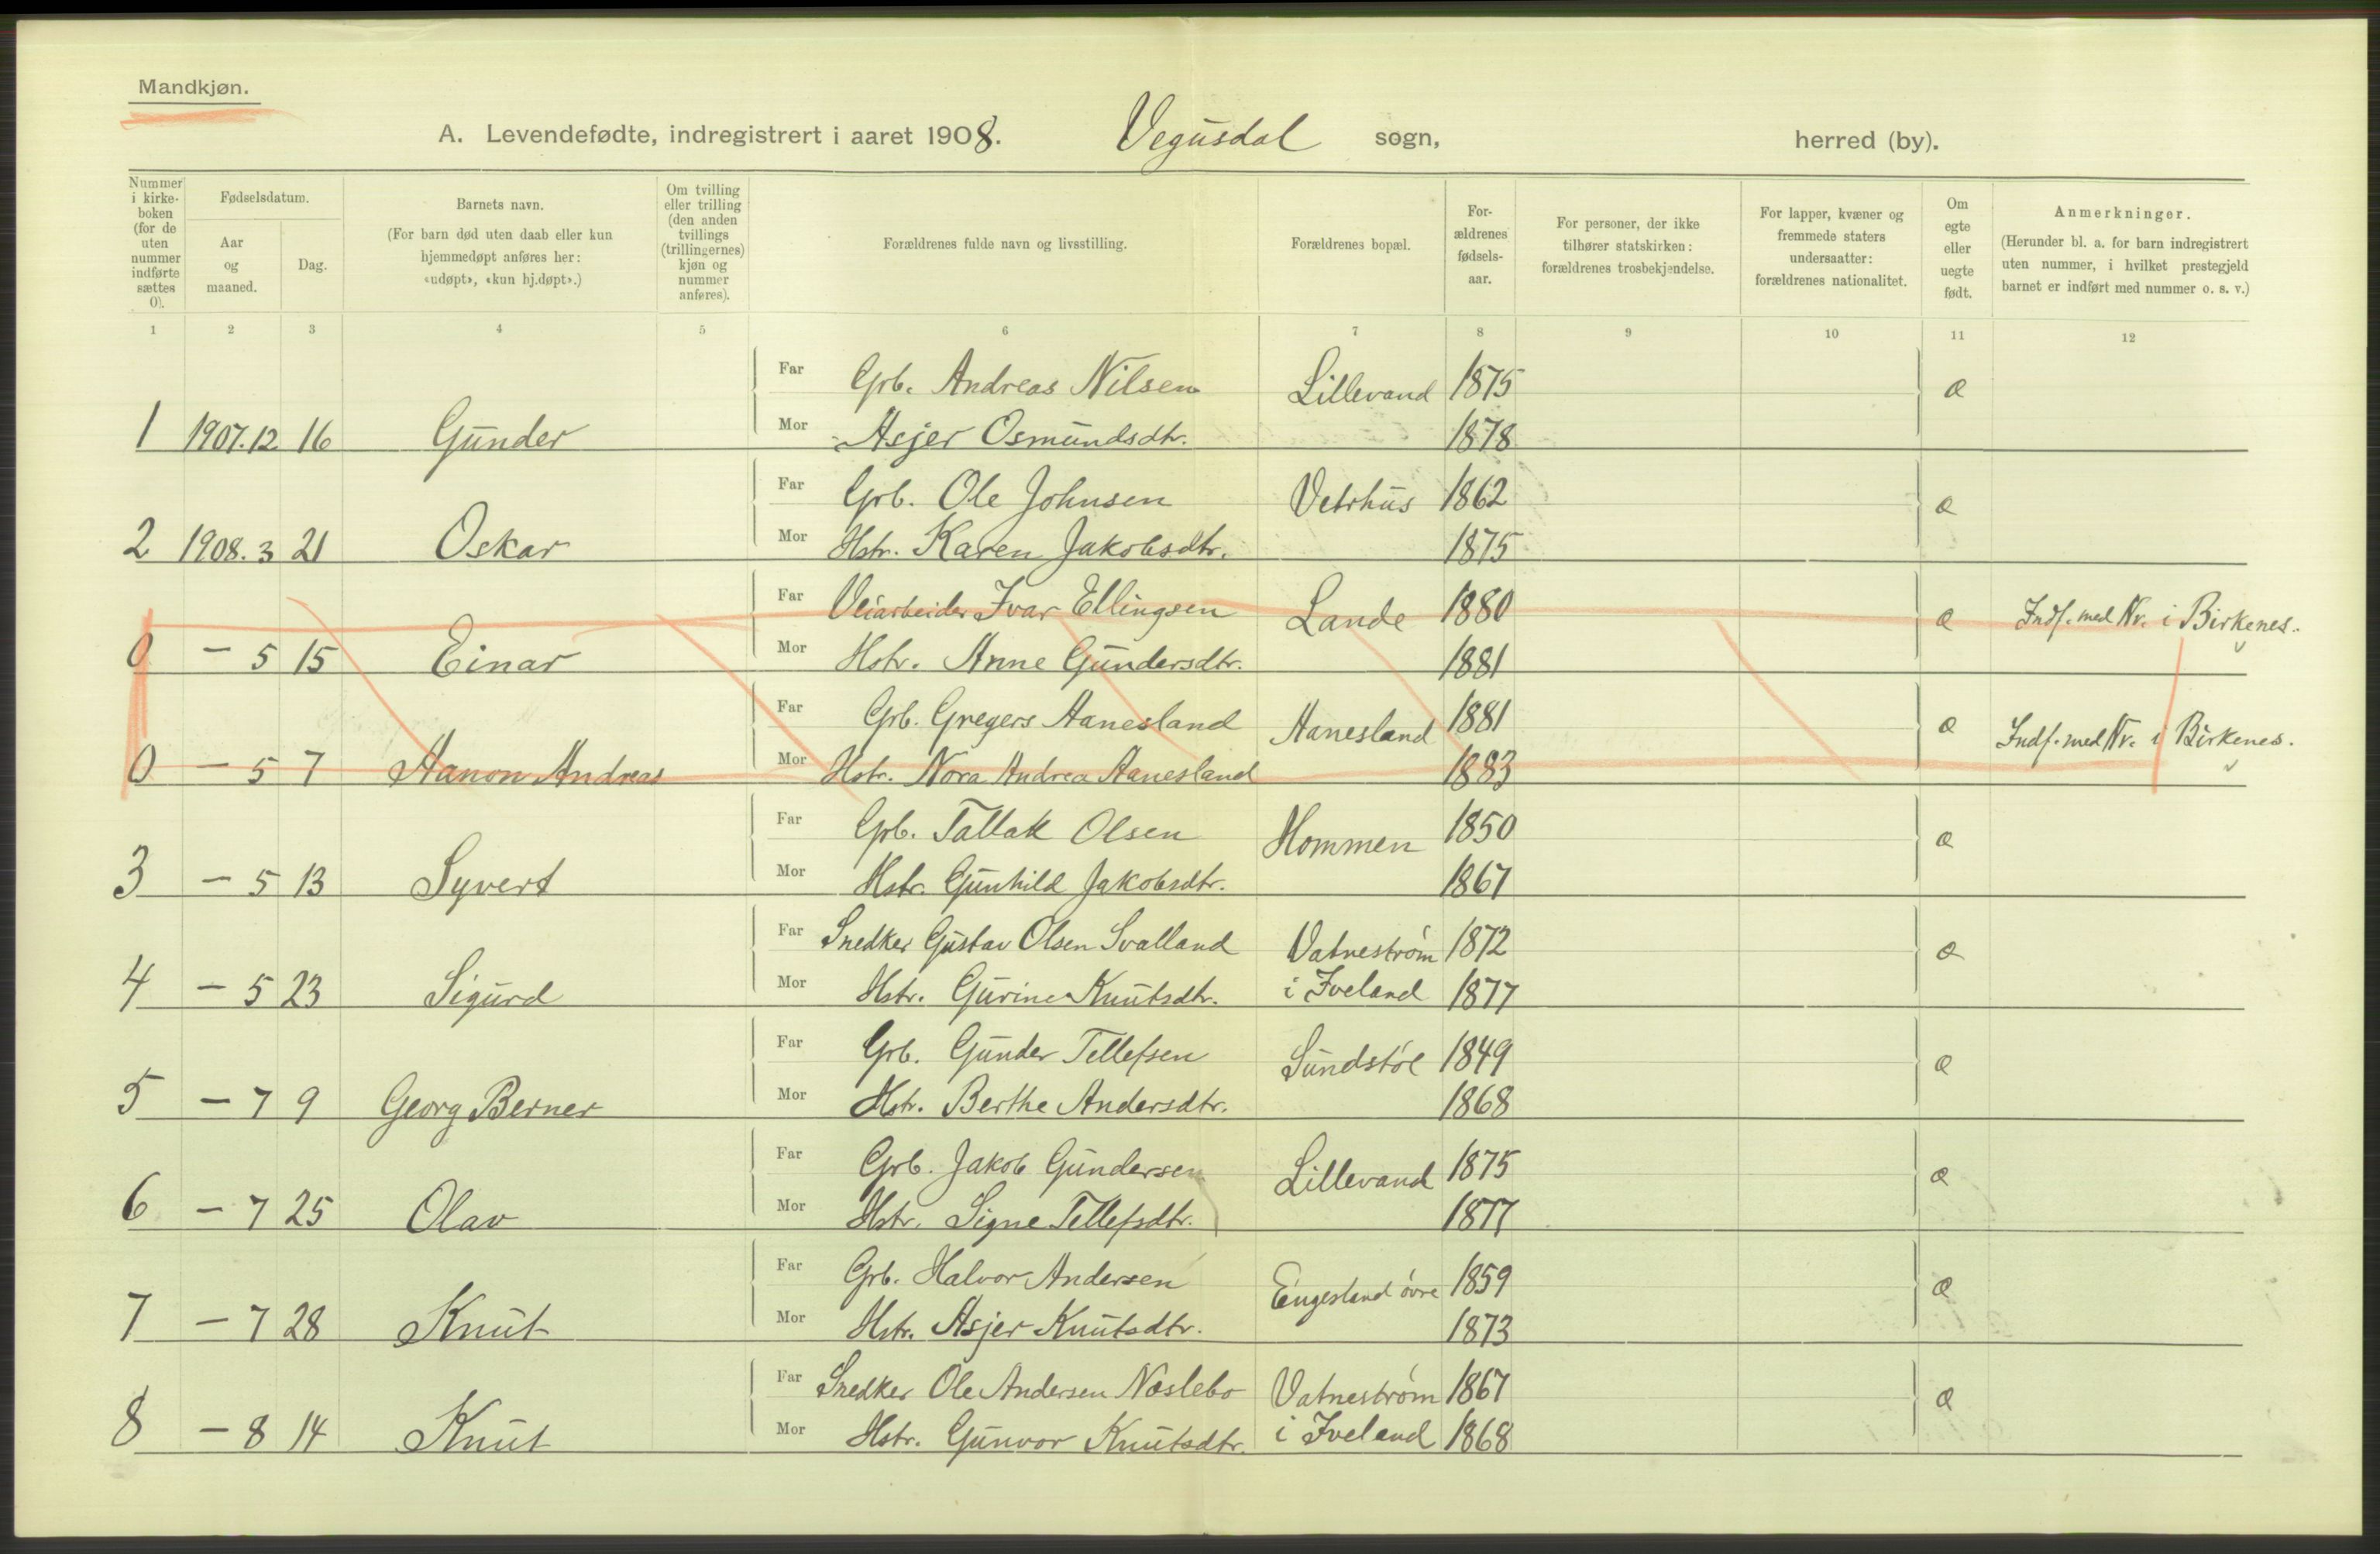 Mandkjøn.
A. Levendefødte, indregistrert i aaret 1908. Vegusdal sogn, herred (by).
Nummer i kirke-boken (for de uten nummer indførte sættes 0).
Fødselsdatum.
Aar og maaned.
Dag.
Barnets navn.
(For barn død uten daab eller kun hjemmedøpt anføres her: «udøpt», «kun hj.døpt».)
Om tvilling eller trilling (den anden tvillings (trillingernes) kjøn og nummer anføres).
Forældrenes fulde navn og livsstilling.
Forældrenes bopæl.
For-ældrenes fødsels-aar.
For personer, der ikke tilhører statskirken: forældrenes trosbekjendelse.
For lapper, kvæner og fremmede staters undersaatter: forældrenes nationalitet.
Om egte eller uegte født.
Anmerkninger.
(Herunder bl. a. for barn indregistrert uten nummer, i hvilket prestegjeld barnet er indført med nummer o. s. v.)
1 2 3 4 5 6 7 8 9 10 11 12
Far Grb. Andreas Nilsen Lillevand 1875 æ
1 1907.12 16 Gunder Mor Asjer Osmundsdtr. 1878
Far Grb. Ole Johnsen Vetrhus 1862 æ
2 1908.3 21 Oskar Mor Hstr. Karen Jakobsdtr. 1875
Far Veiarbeider Ivar Ellingsen Lande 1880 æ Indf. med Nr. i Birkenes.
0 – 5 15 Einar Mor Hstr. Anne Gundersdtr. 1881
Far Grb. Gregers Aanesland Aanesland 1881 æ Indf. med Nr. i Birkenes.
0 – 5 7 Aanon Andreas Mor Hstr. Nora Andrea Aanesland 1883
Far Grb. Tallak Olsen Hommen 1850 æ
3 – 5 13 Syvert Mor Hstr. Gunhild Jakobsdtr. 1867
Far Snedker Gustav Olsen Svalland Vatneström 1872 æ
4 – 5 23 Sigurd Mor Hstr. Gurine Knutsdtr. i Iveland 1877
Far Grb. Gunder Tellefsen Sundstöl 1849 æ
5 – 7 9 Georg Berner Mor Hstr. Berthe Andersdtr. 1868
Far Grb. Jakob Gundersen Lillevand 1875 æ
6 – 7 25 Olav Mor Hstr. Signe Tellefsdtr. 1877
Far Grb. Halvor Andersen Engesland övre 1859 æ
7 – 7 28 Knut Mor Hstr. Asjer Knutsdtr. 1873
Far Snedker Ole Andersen Næslebo Vatneström 1867 æ
8 – 8 14 Knut Mor Hstr. Gunvor Knutsdtr. i Iveland 1868